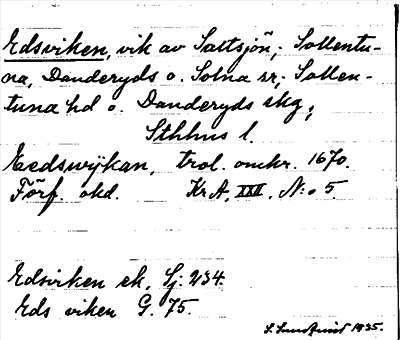 Edsviken, vik av Saltsjön; Sollentu-
na, Danderyds o. Solna sr; Sollen-
tuna hd o. Danderyds skg;
Sthlms l.
Eedswijkan, trol. omkr. 1670.
Förf. okd. Kr A, XXII. N:o 5.
Edsviken ek, Sj: 234.
Eds viken G. 75.
S. Lundqvist 1935.